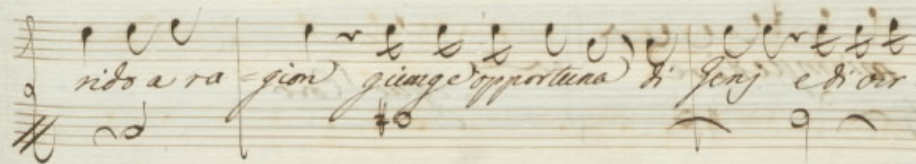 rido a ra = gion giunge opportuna di Genj e di vir